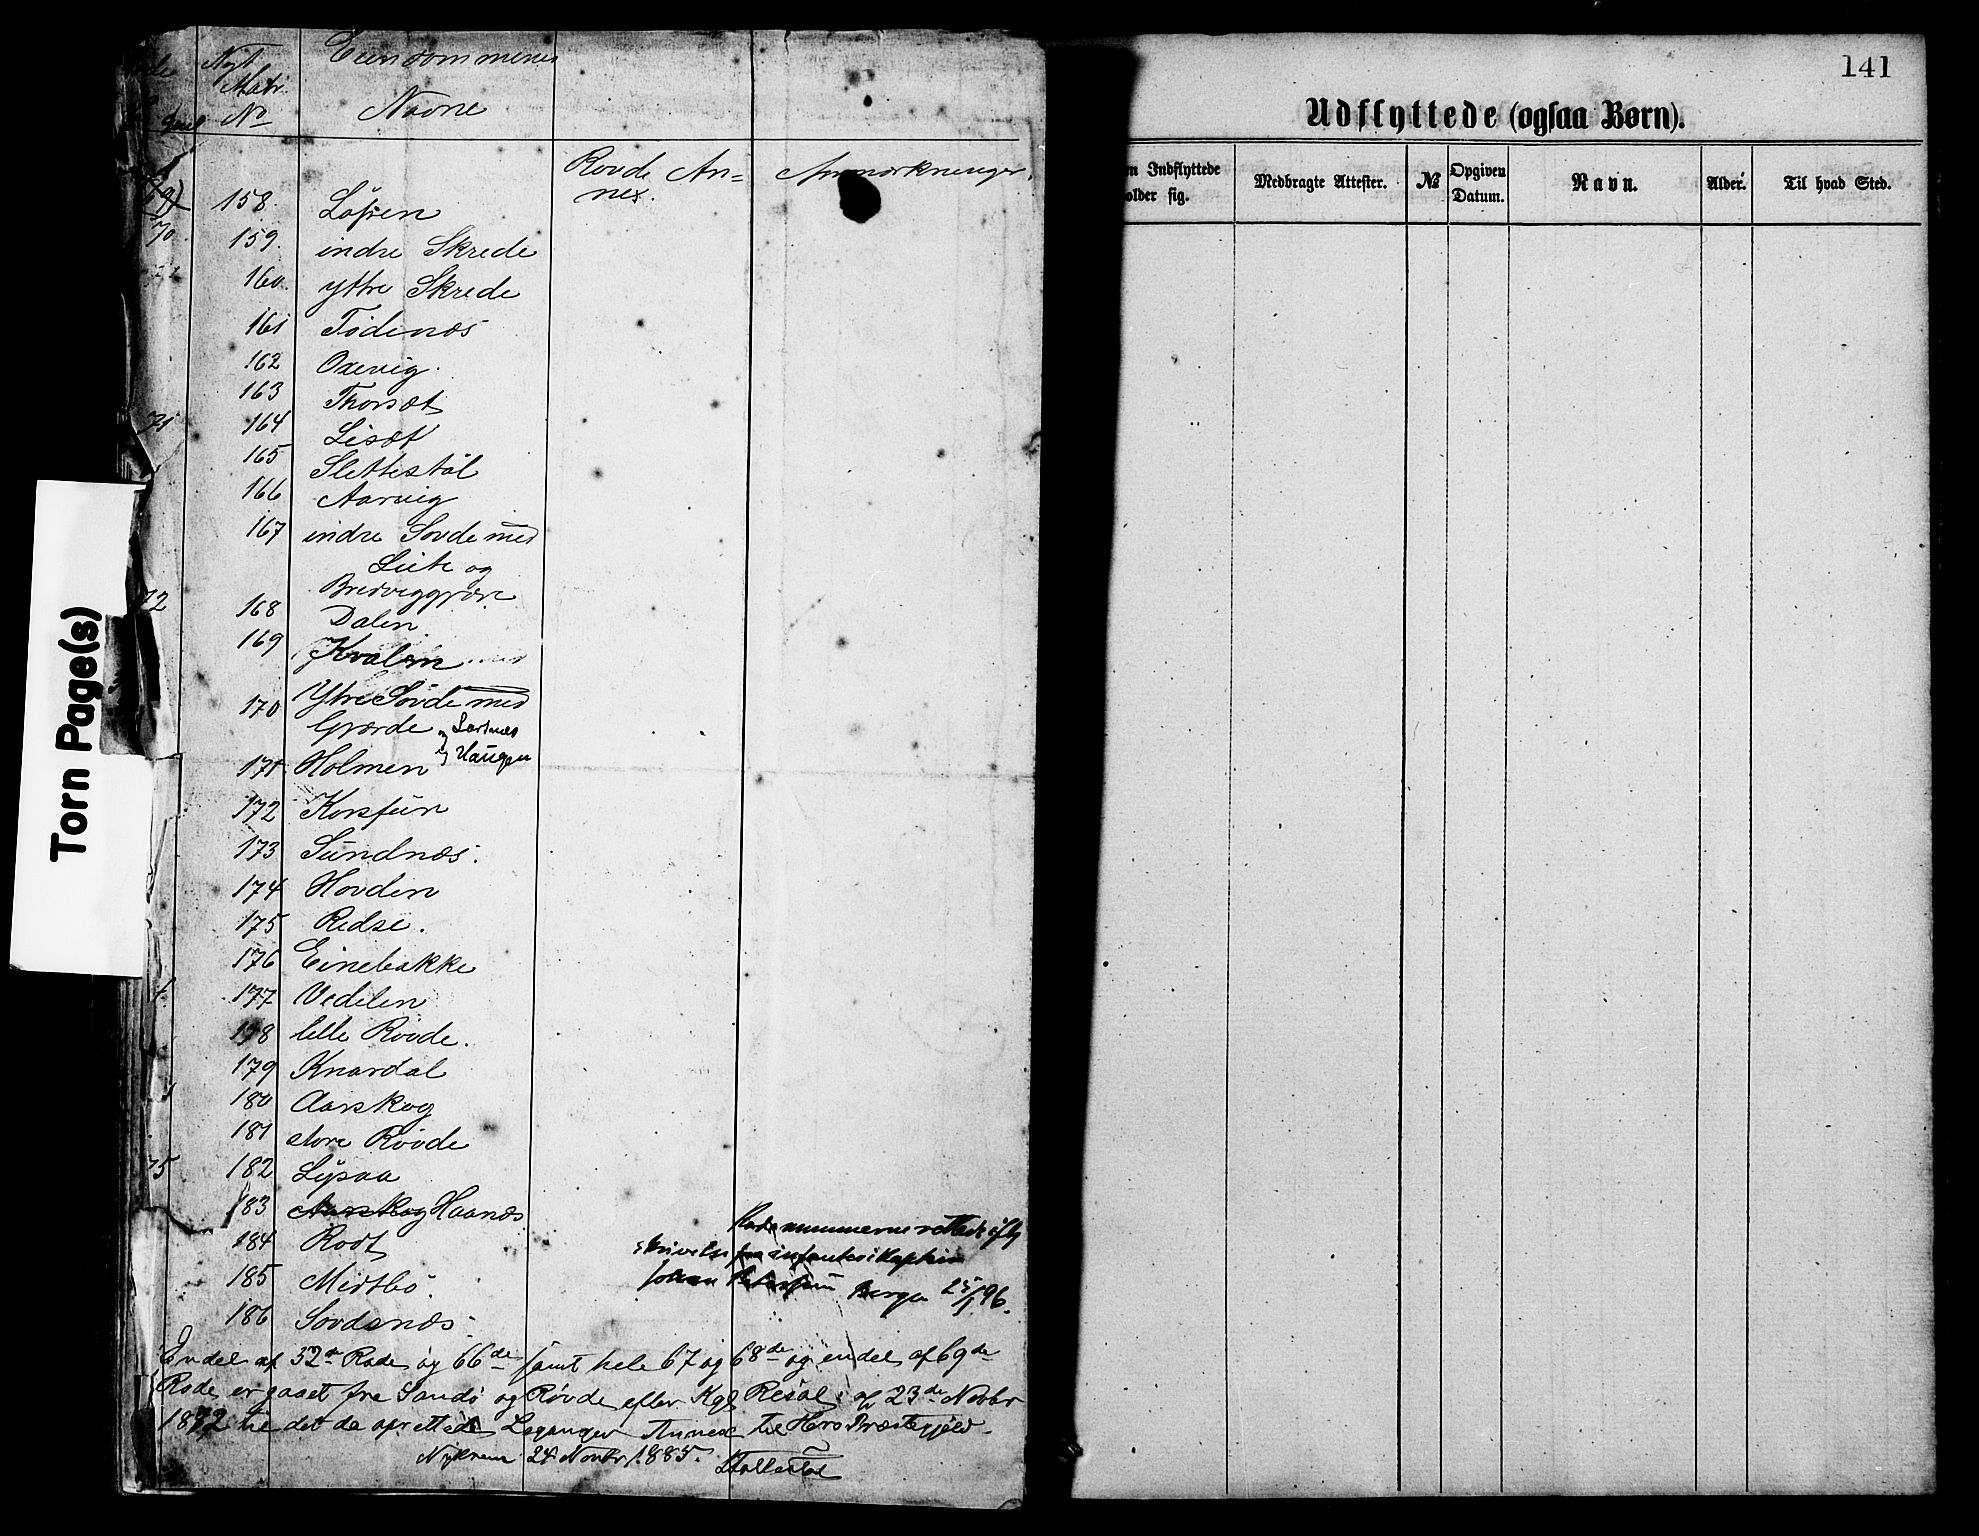 Nyt
Matr.
No
Eiendommenes
Navne
Rovde An=
nex.
Anmærkninger.
158. Løfsen
70 159. indre Skrede
160. yttre Skrede
161 Tødenæs
162 Oxevig.
163 Thorsæt
71 164 Lisæt
165 Slettestøl
166 Aarvig
167 indre Sovde med
Leite og
72 168 Dalen
169 Kvalem
170 Ytre Søvde med
Gjærde og
og Haugen
171 Holmen
172 Korsfur
173 Sundnæs.
174 Hovden
175 Redse.
176 Einebakke
177 Vedelen
178 lille Røvde.
179 Knardal
180 Aarskog
181 store Røvde
75 182 Lysaa
183 Aarskog Haanæs
184 Rodt
185 Midtbø.
186 Sovdsnæs
Rodenummerne rettede efter
skrivelse fra infanterikaptein
Bergen 25/1 96.
Endel af 32te Rode og 66de samt hele 67 og 68de og endel af 69de
Rode er gaaet fra Sandø og Røvde efter Kgl Resol. af 23de Novbr
1872 til det da oprettede Leganger Annex til Herø Præstegjeld.
24 Novbr 1885.
Torn Page(s)
141
Udflyttede (ogsaa Børn).
en Indflyttede
older sig.
Medbragte Attester.
№
Opgiven
Datum.
Navn.
Alder.
Til hvad Sted.